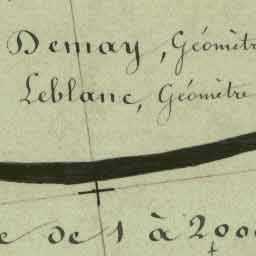 Demay, Géomètr
Leblanc, Géomètre
e de 1 à 2000